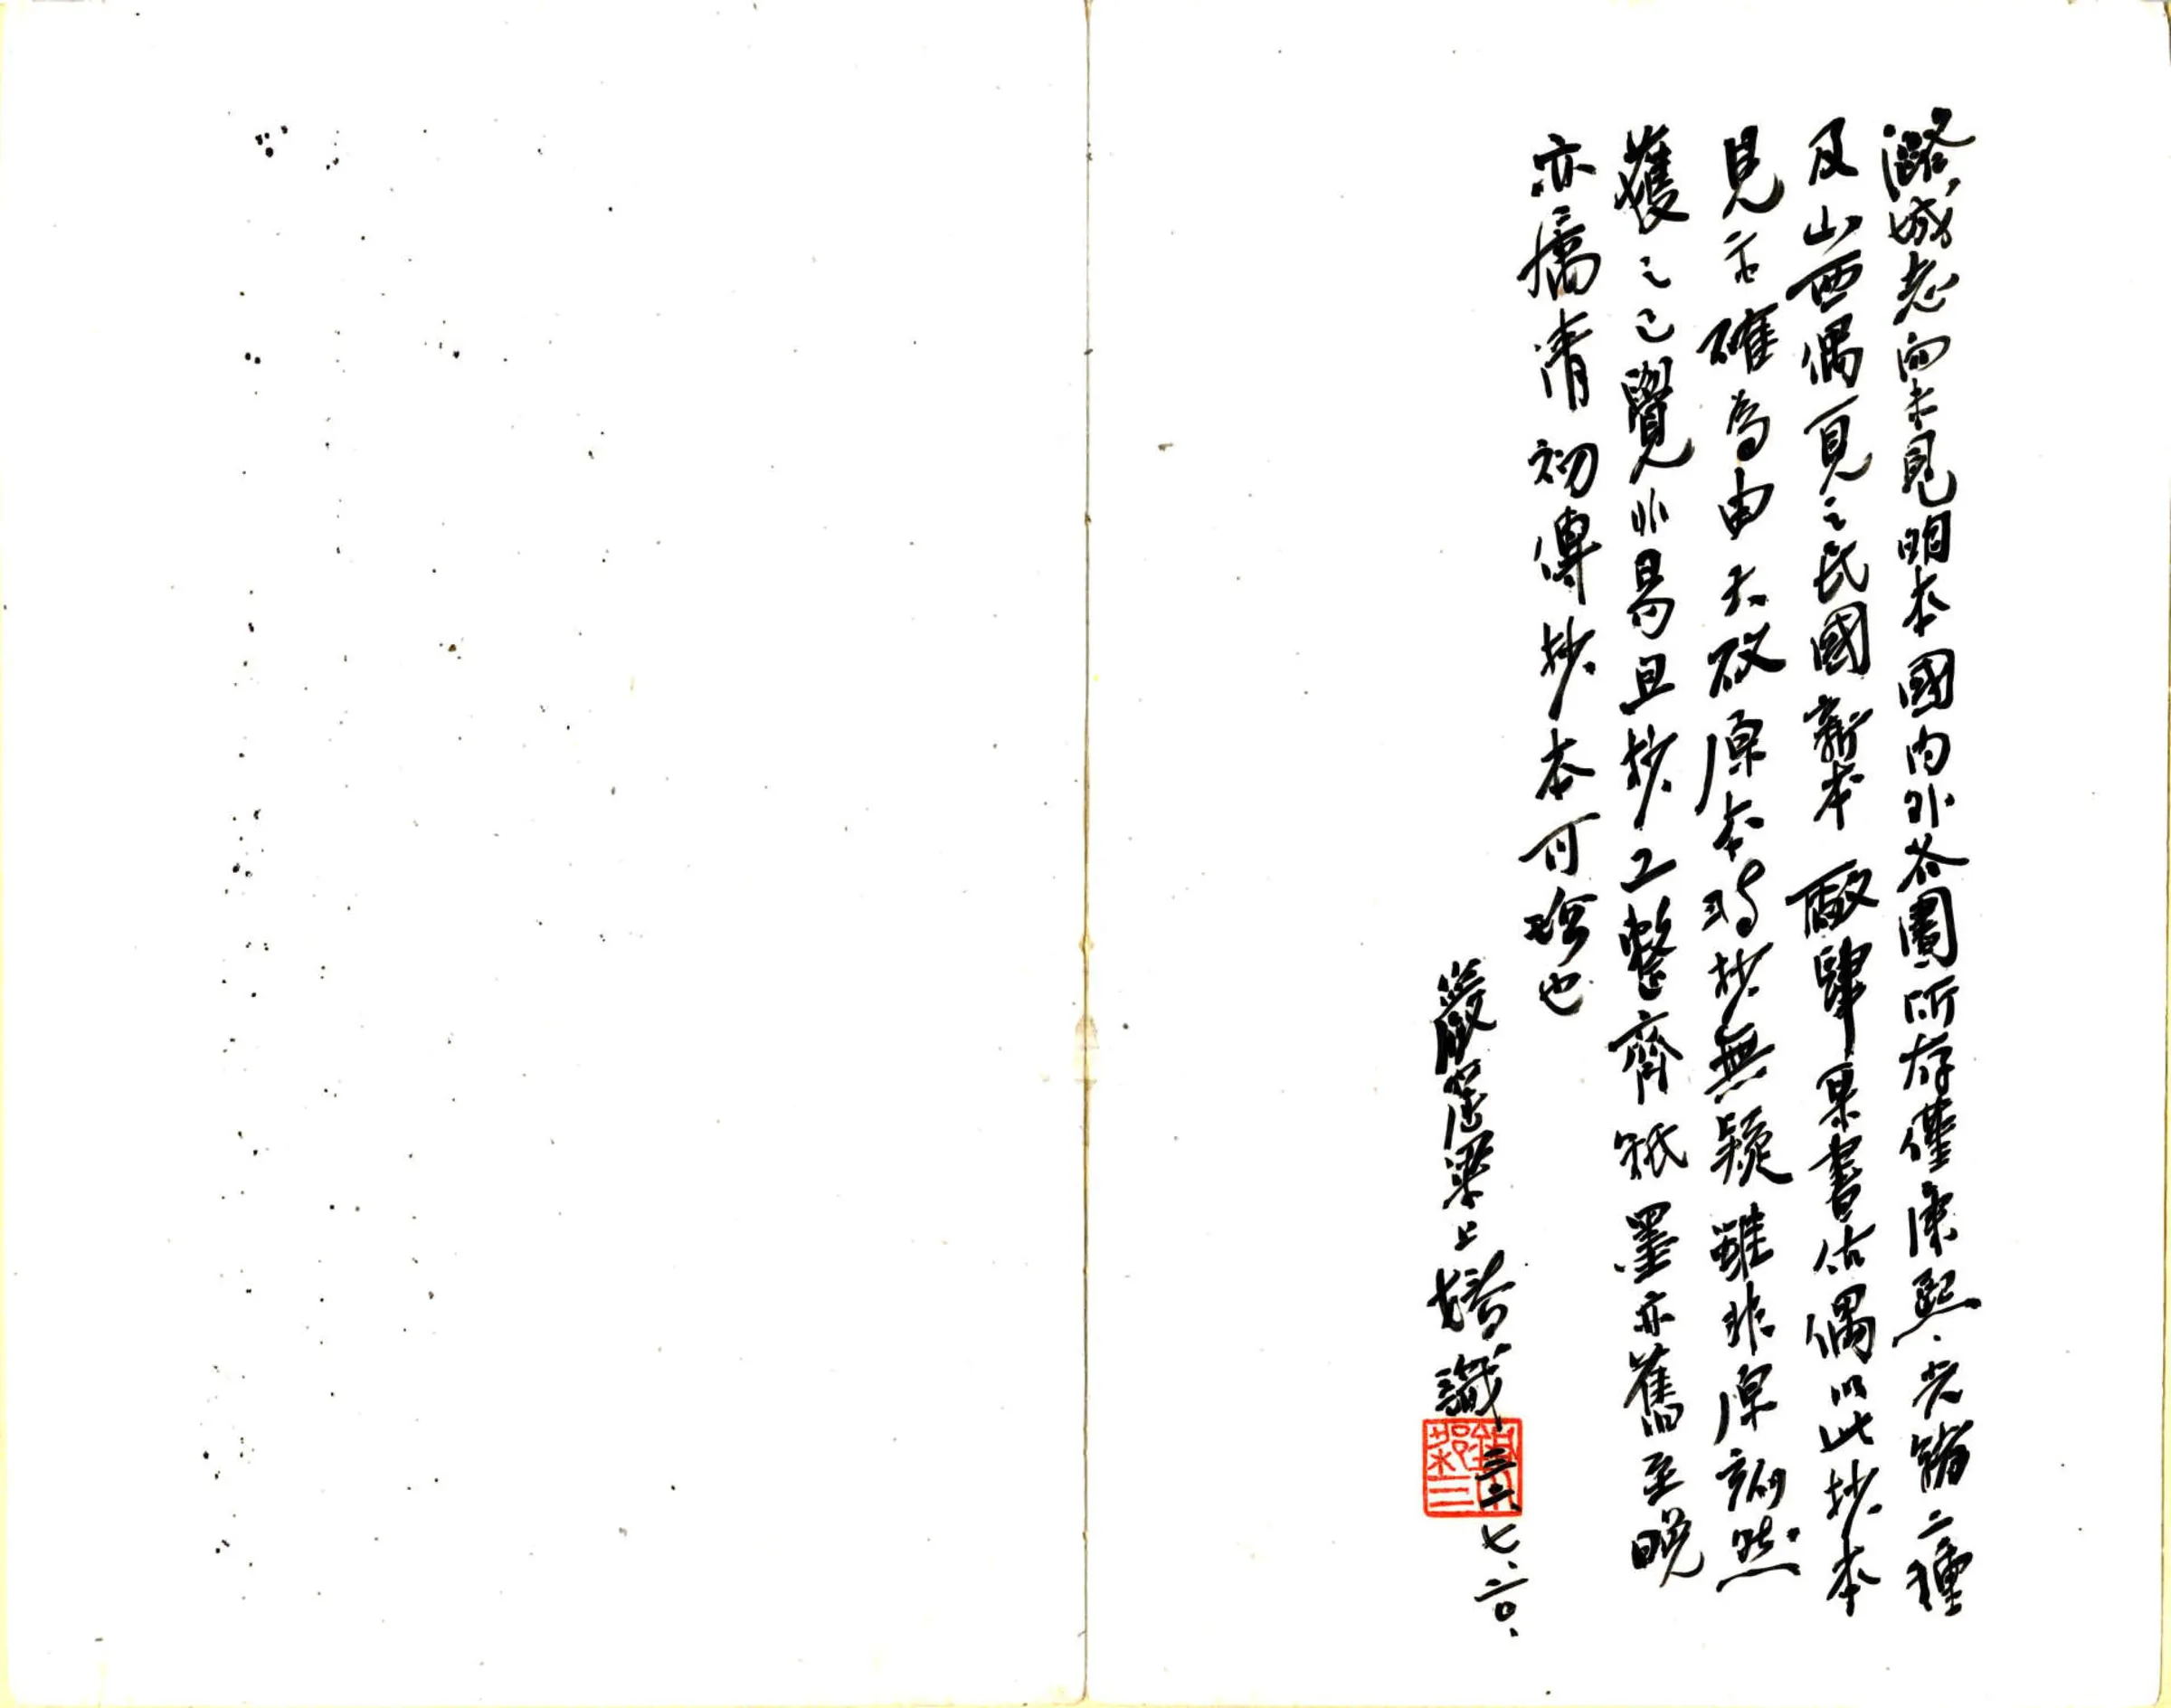 潞城志向未見明本國内外各圖所存僅康熙、光緒二種
及山西偶見之民國新本 廠肆某書估偶以此抄本
見示確為由天啟原本時抄無疑雖非原刻然
獲之已覺非易且抄工整齊紙墨亦舊至晚
亦擕清初傳抄本可珍也
梁上椿識 三三、七、二〇、